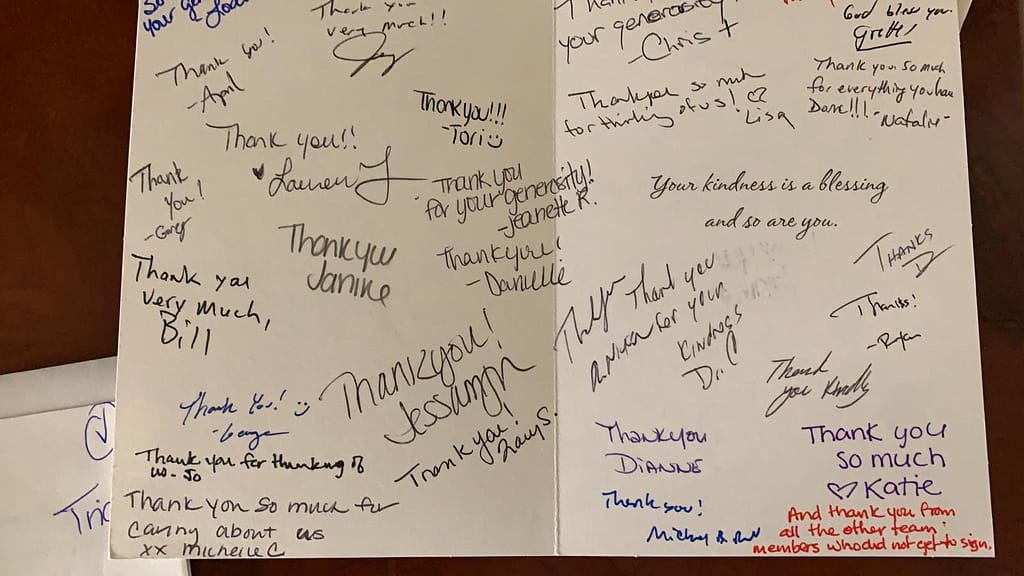 So
your ge
Thank you
very much!!
Thank you!
-April
Thank you!!!
-Tori
Thank you!!
Lauren
Thank
you!
Thank you
for your generosity!
-Jeanette R.
Thank you
Janine
Thank you!
-Danielle
Thank you
very much,
Bill
Thank you!
Jessamyn
Thank You!
Thank you!
Thank you for thinking of
us - Jo
Thank you so much for
caring about us
xx michelle C
your generosity!
-Chris
God bless you
Thank you so much
for thinking of us!
Lisa
Thank you so much
for everything you have
Done!!!
-Natalie-
Your kindness is a blessing
and so are you.
THANKS
Thank you
for your
Kindness
Thanks!
-Ryan
Thank
you Kindly
Thank you
DIANNE
Thank you
so much
Katie
Thank you!
Mickey &
And thank you from
all the other team
members who did not get to sign.